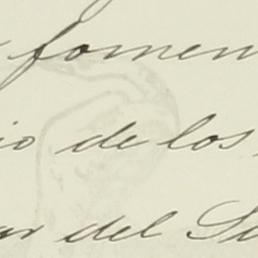 fomen
io de los
ar del Su